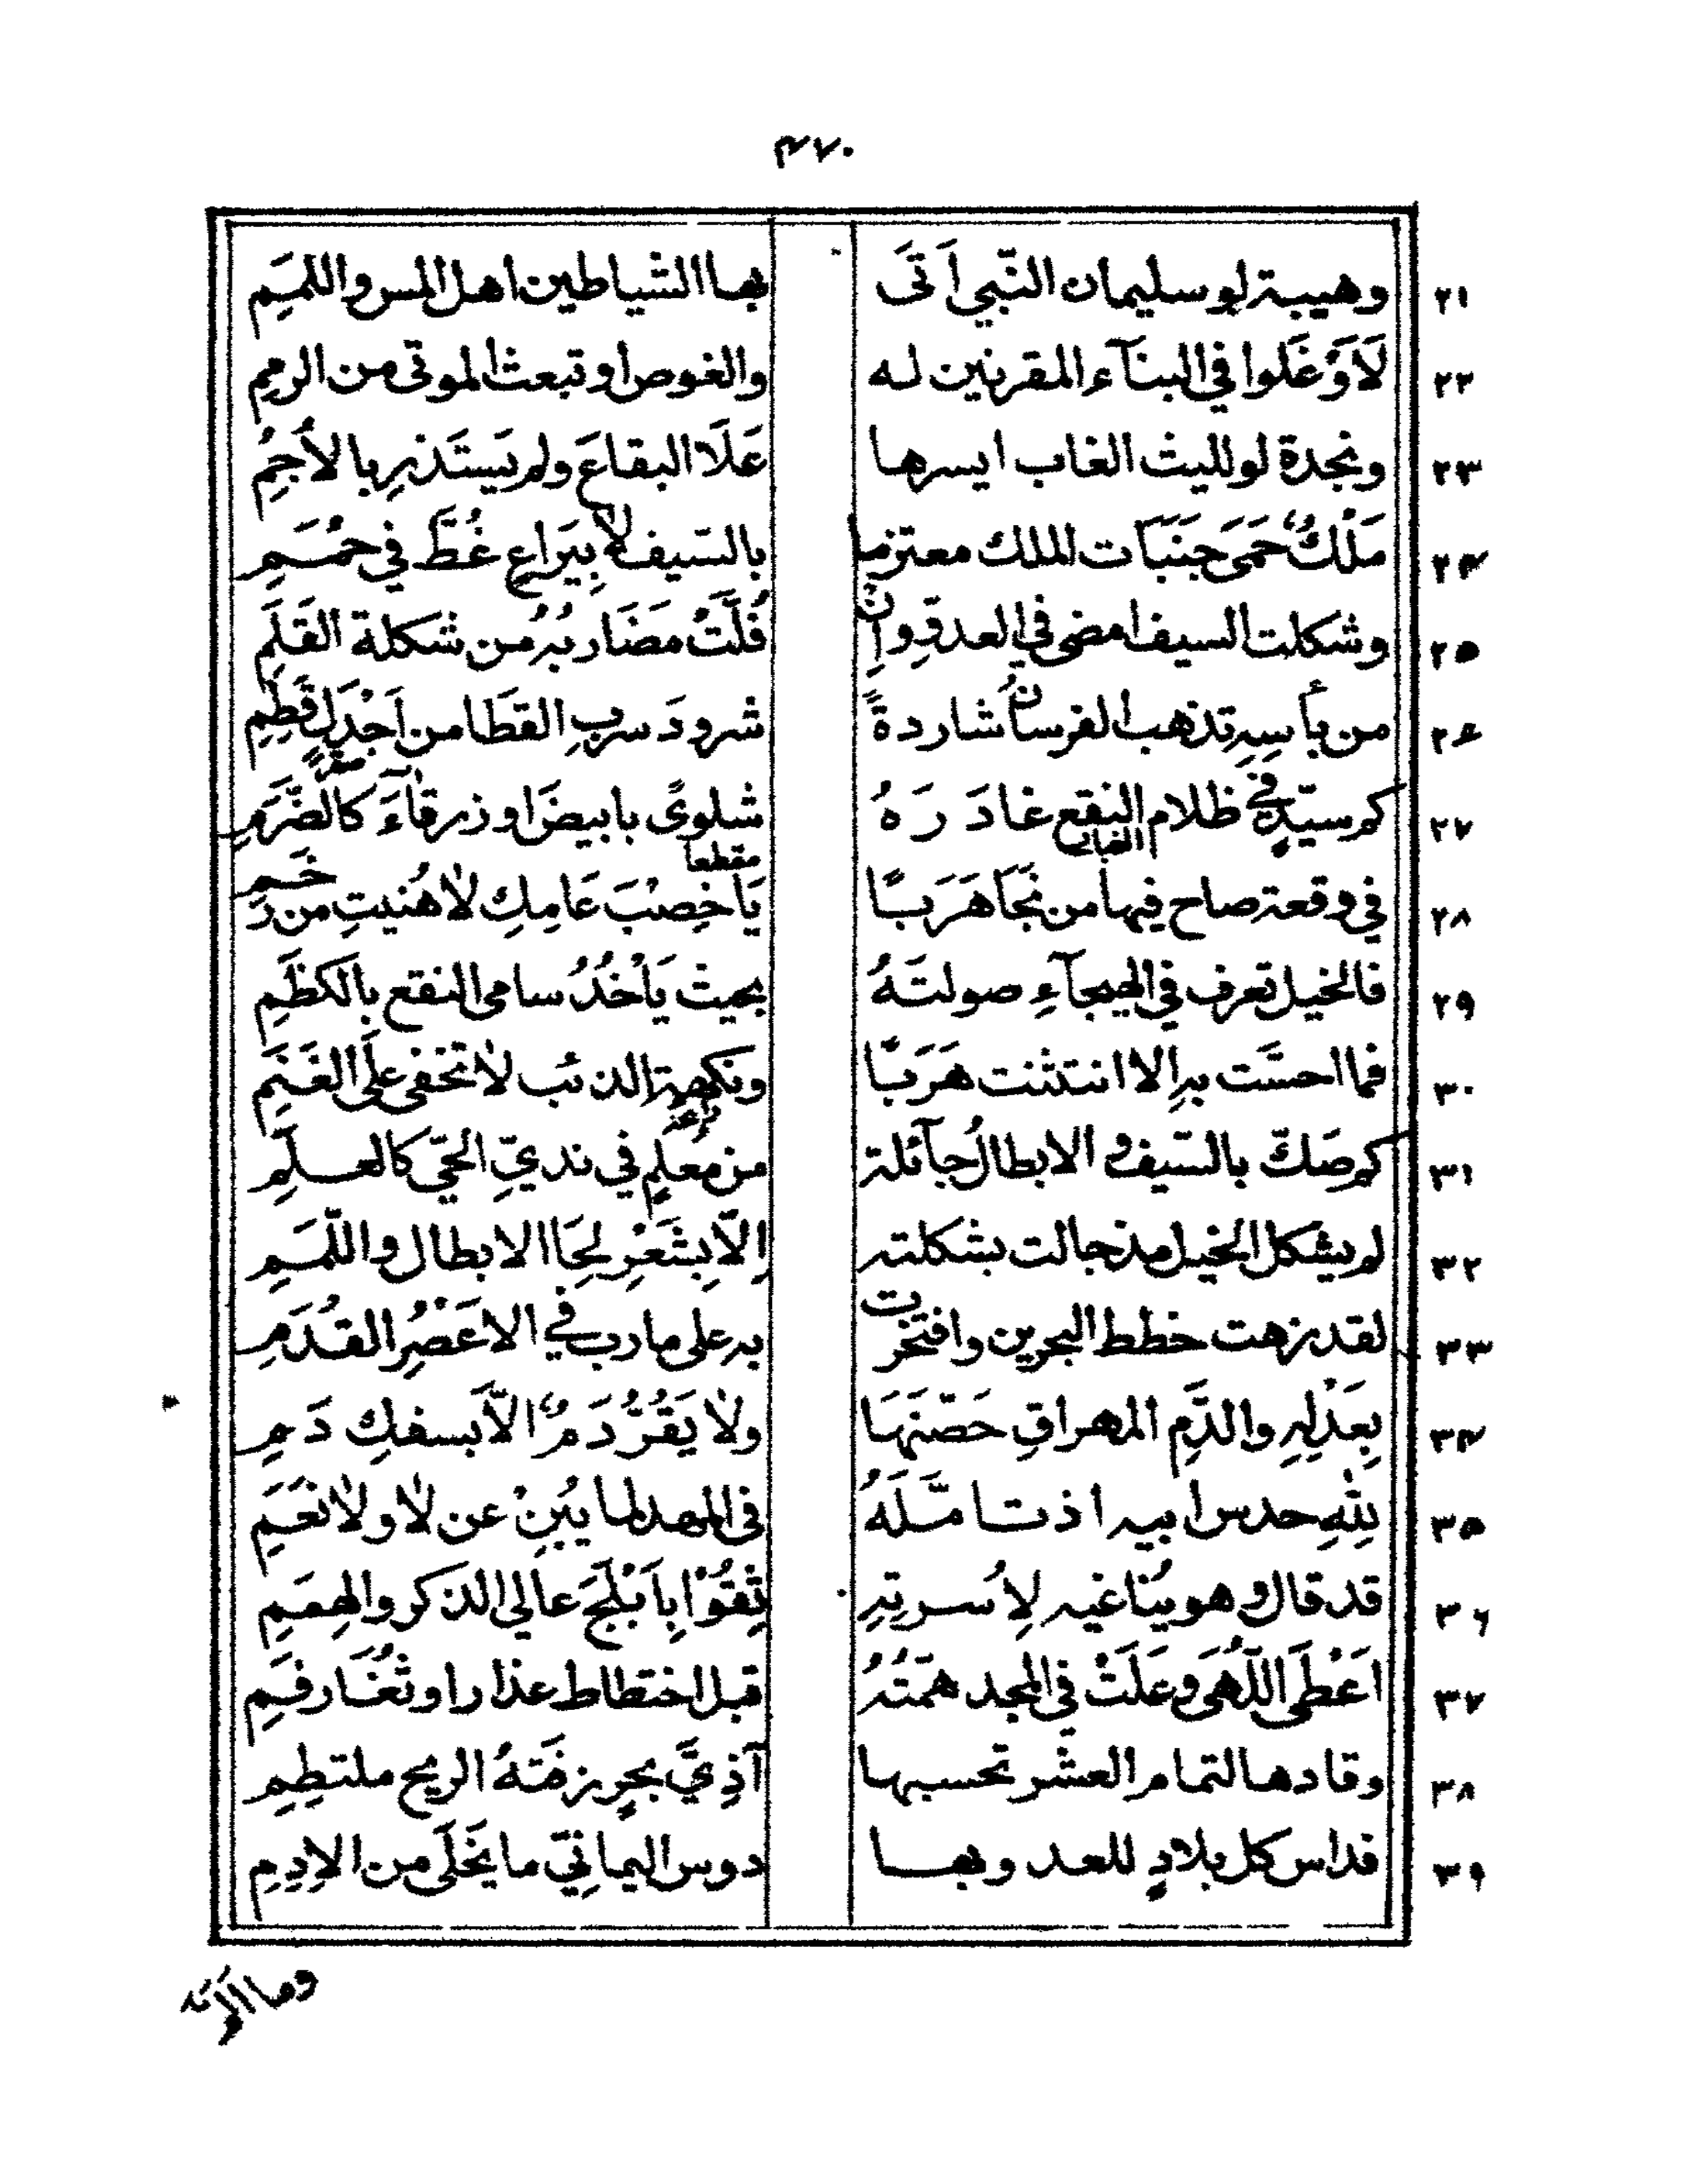 ٤٧٠
٢١ وهيبة لو سليمان النّبي اَتَى بها الشياطين اهل المس واللمَمِ
٢٢ لَاَوْغَلوا في البنآء المقرنين له والغوص او تبعث الموتى من الرمِمِ
٢٣ ونجدة لو لليث الغاب ايسرها عَلَا البقاعَ ولم يَستَذرِ بالأَجَمِ
٢٤ مَلْكٌ حَمَى جَنَبَات الملك معتزما بالسّيف لا بِيَراعٍ غُطَّ في حمَمِ
٢٥ وشكلت السيف امضى في العدوِّ واِنْ فُلَّتْ مضَاربُهُ من شكلة القَلَمِ
٢٦ من بأسِهِ تذهب الفرسانُ شاردةً شرودَ سربِ القَطَا من اَجْدَلٍ قَطِمِ
٢٧ كم سيّدٍ في ظلام النقع غادَرَهُ شلوىً بابيضَ او زرقآءَ كالضَّرَمِ
الغبار
٢٨ في وقعة صاح فيها من نَجَا هَرَبًا يَا خِصْبَ عَامِكِ لا هُنيتِ من رَخَمِ
مقطعا
٢٩ فالخيل تعرف في الهيجآءِ صولتَهُ بحيث يَأْخُذُ سامى النقع بالكَظَمِ
٣٠ فما احسَّت بهِ الا انتثنت هَرَبًا ونكهة الذئب لا تخفى على الغَنَمِ
٣١ كم صَكّ بالسّيف والابطالُ جآئلة من مُعلِمٍ في نديِّ الحيّ كالعلِمِ
٣٢ لم يشكل الخيل مذ جالت بشكلته اِلاّ بِشَعْرِ لِحَا الابطال واللّمَمِ
٣٣ لقد زهت خطط البحرين وافتخرت به على مارب في الاعْصُرِ القُدَمِ
٣٤ بِعَدْلِهِ والدَّمِ المهراقِ حَصّنَهَا ولا يَقُرُّ دَمٌ الاّ بسفكِ دَمِ
٣٥ لِلّهِ حدس ابيه اذ تامَّلَهُ في المهد لما يُبِنْ عن لا ولا نَعَمِ
٣٦ قد قال وهو يُناغيه لِاُسرتِهِ ثِقُوْا بِاَبْلَجَ عالى الذكر والهِمَمِ
٣٧ اَعْطَى اللّهَى وعَلَتْ في المجد همّتُهُ قبل اختطاط عذار او ثُغَار فَمِ
٣٨ وقادها لتمام العشر تحسبها آذِيَّ بحرٍ زفَتهُ الريح ملتطِمِ
٣٩ فداس كل بلادٍ للعد وبها دوس اليمانِيّ ما يَخْلَى من الاِدِمِ